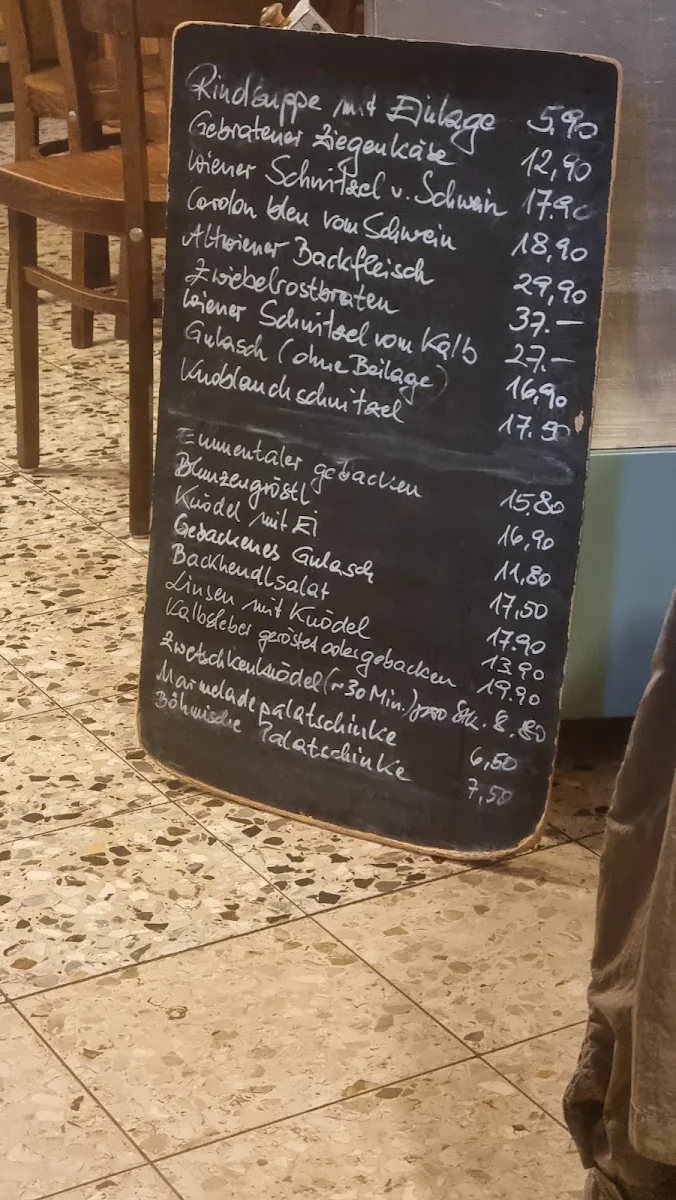 Rindsuppe mit Einlage 5,90
Gebratener Ziegenkäse 12,90
Wiener Schnitzel v. Schwein 17.90
Cordon bleu vom Schwein 18,90
Altwiener Backfleisch 29,90
Zwiebelrostbraten 37.—
Wiener Schnitzel vom Kalb 27.—
Gulasch (ohne Beilage) 16,90
Knoblauchschnitzel 17.50
Emmentaler gebacken 15.80
Blunzengröstl 16,90
Knödel mit Ei 11,80
Gebackenes Gulasch 17,50
Backhendlsalat 17.90
Linsen mit Knödel 13.90
Kalbsleber geröstet oder gebacken 19.90
Zwetschkenknödel (~30 Min.) pro Stk. 8.80
Marmeladepalatschinke 6,50
Böhmische Palatschinke 7,50